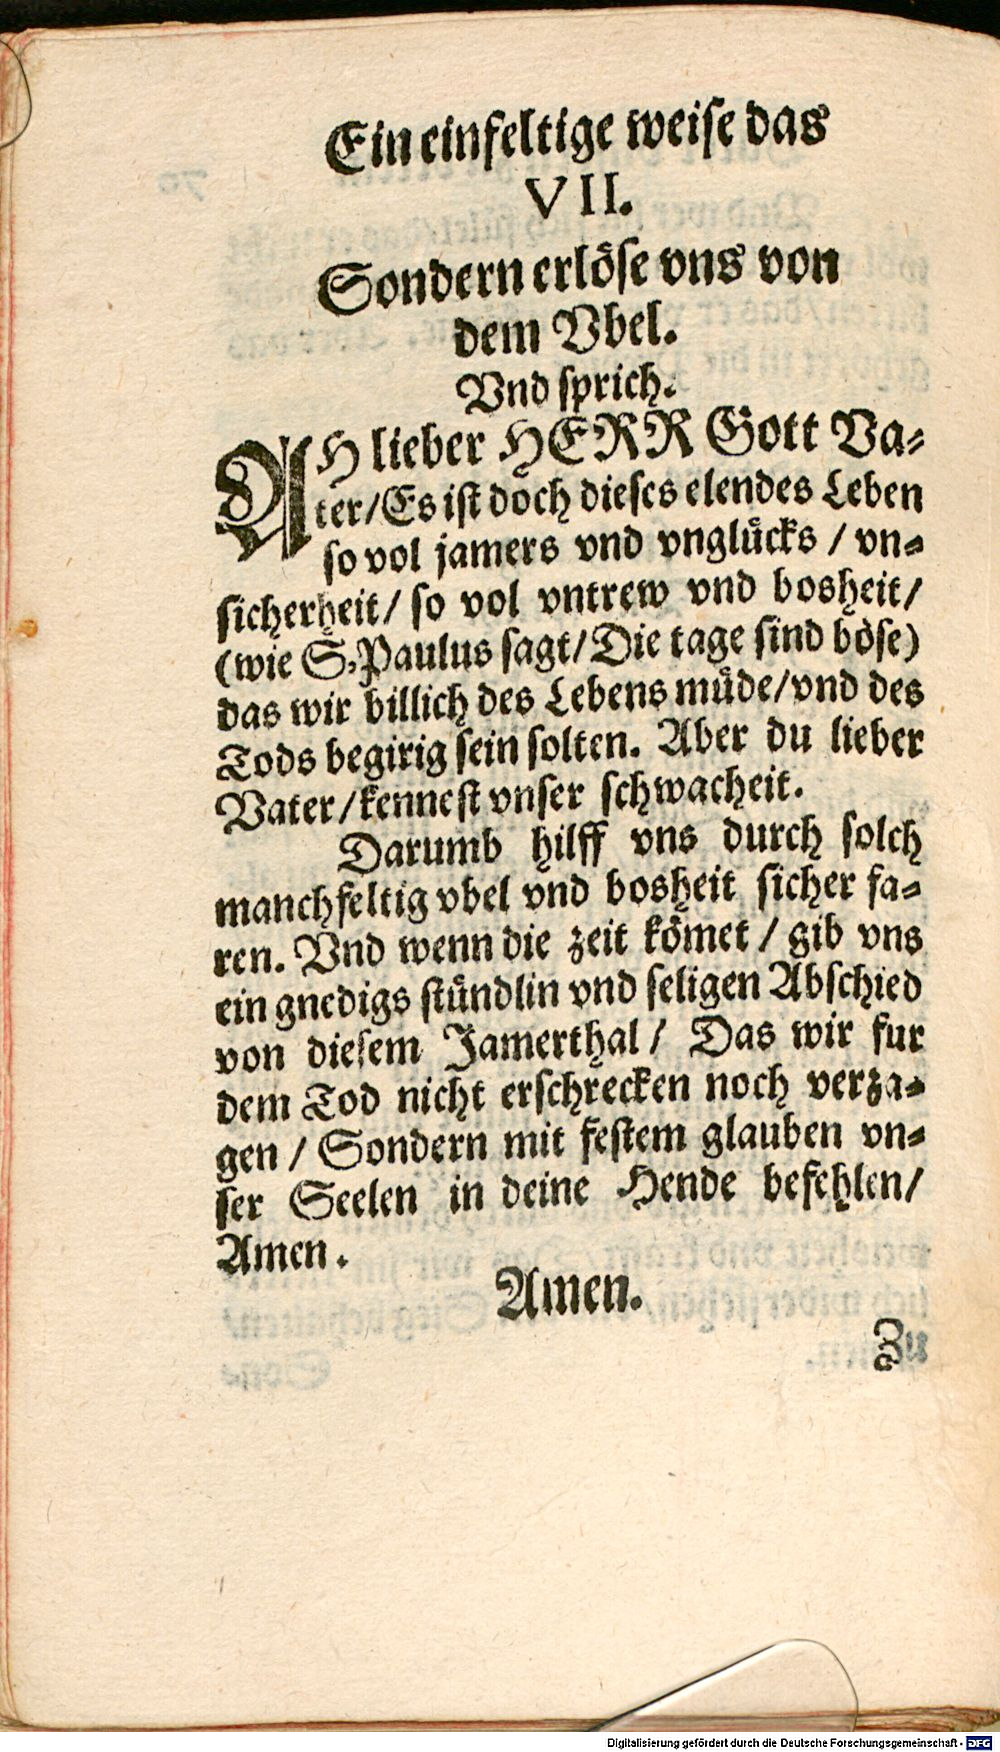 Ein einfeltige weise das
VII.
Sondern erlöse vns von
dem Vbel.
Vnd sprich.
AH lieber HERR Gott Va-
ter/Es ist doch dieses elendes Leben
so vol jamers vnd vnglücks / vn-
sicherheit/ so vol vntrew vnd bosheit/
(wie S. Paulus sagt/Die tage sind böse)
das wir billich des Lebens müde/vnd des
Tods begirig sein solten. Aber du lieber
Vater/kennest vnser schwacheit.
Darumb hilff vns durch solch
manchfeltig vbel vnd bosheit sicher fa-
ren. Vnd wenn die zeit kömet / gib vns
ein gnedigs stündlin vnd seligen Abschied
von diesem Jamerthal / Das wir fur
dem Tod nicht erschrecken noch verza-
gen / Sondern mit festem glauben vn-
ser Seelen in deine Hende befehlen/
Amen.
Amen.
Zu
Digitalisierung gefördert durch die Deutsche Forschungsgemeinschaft - DFG